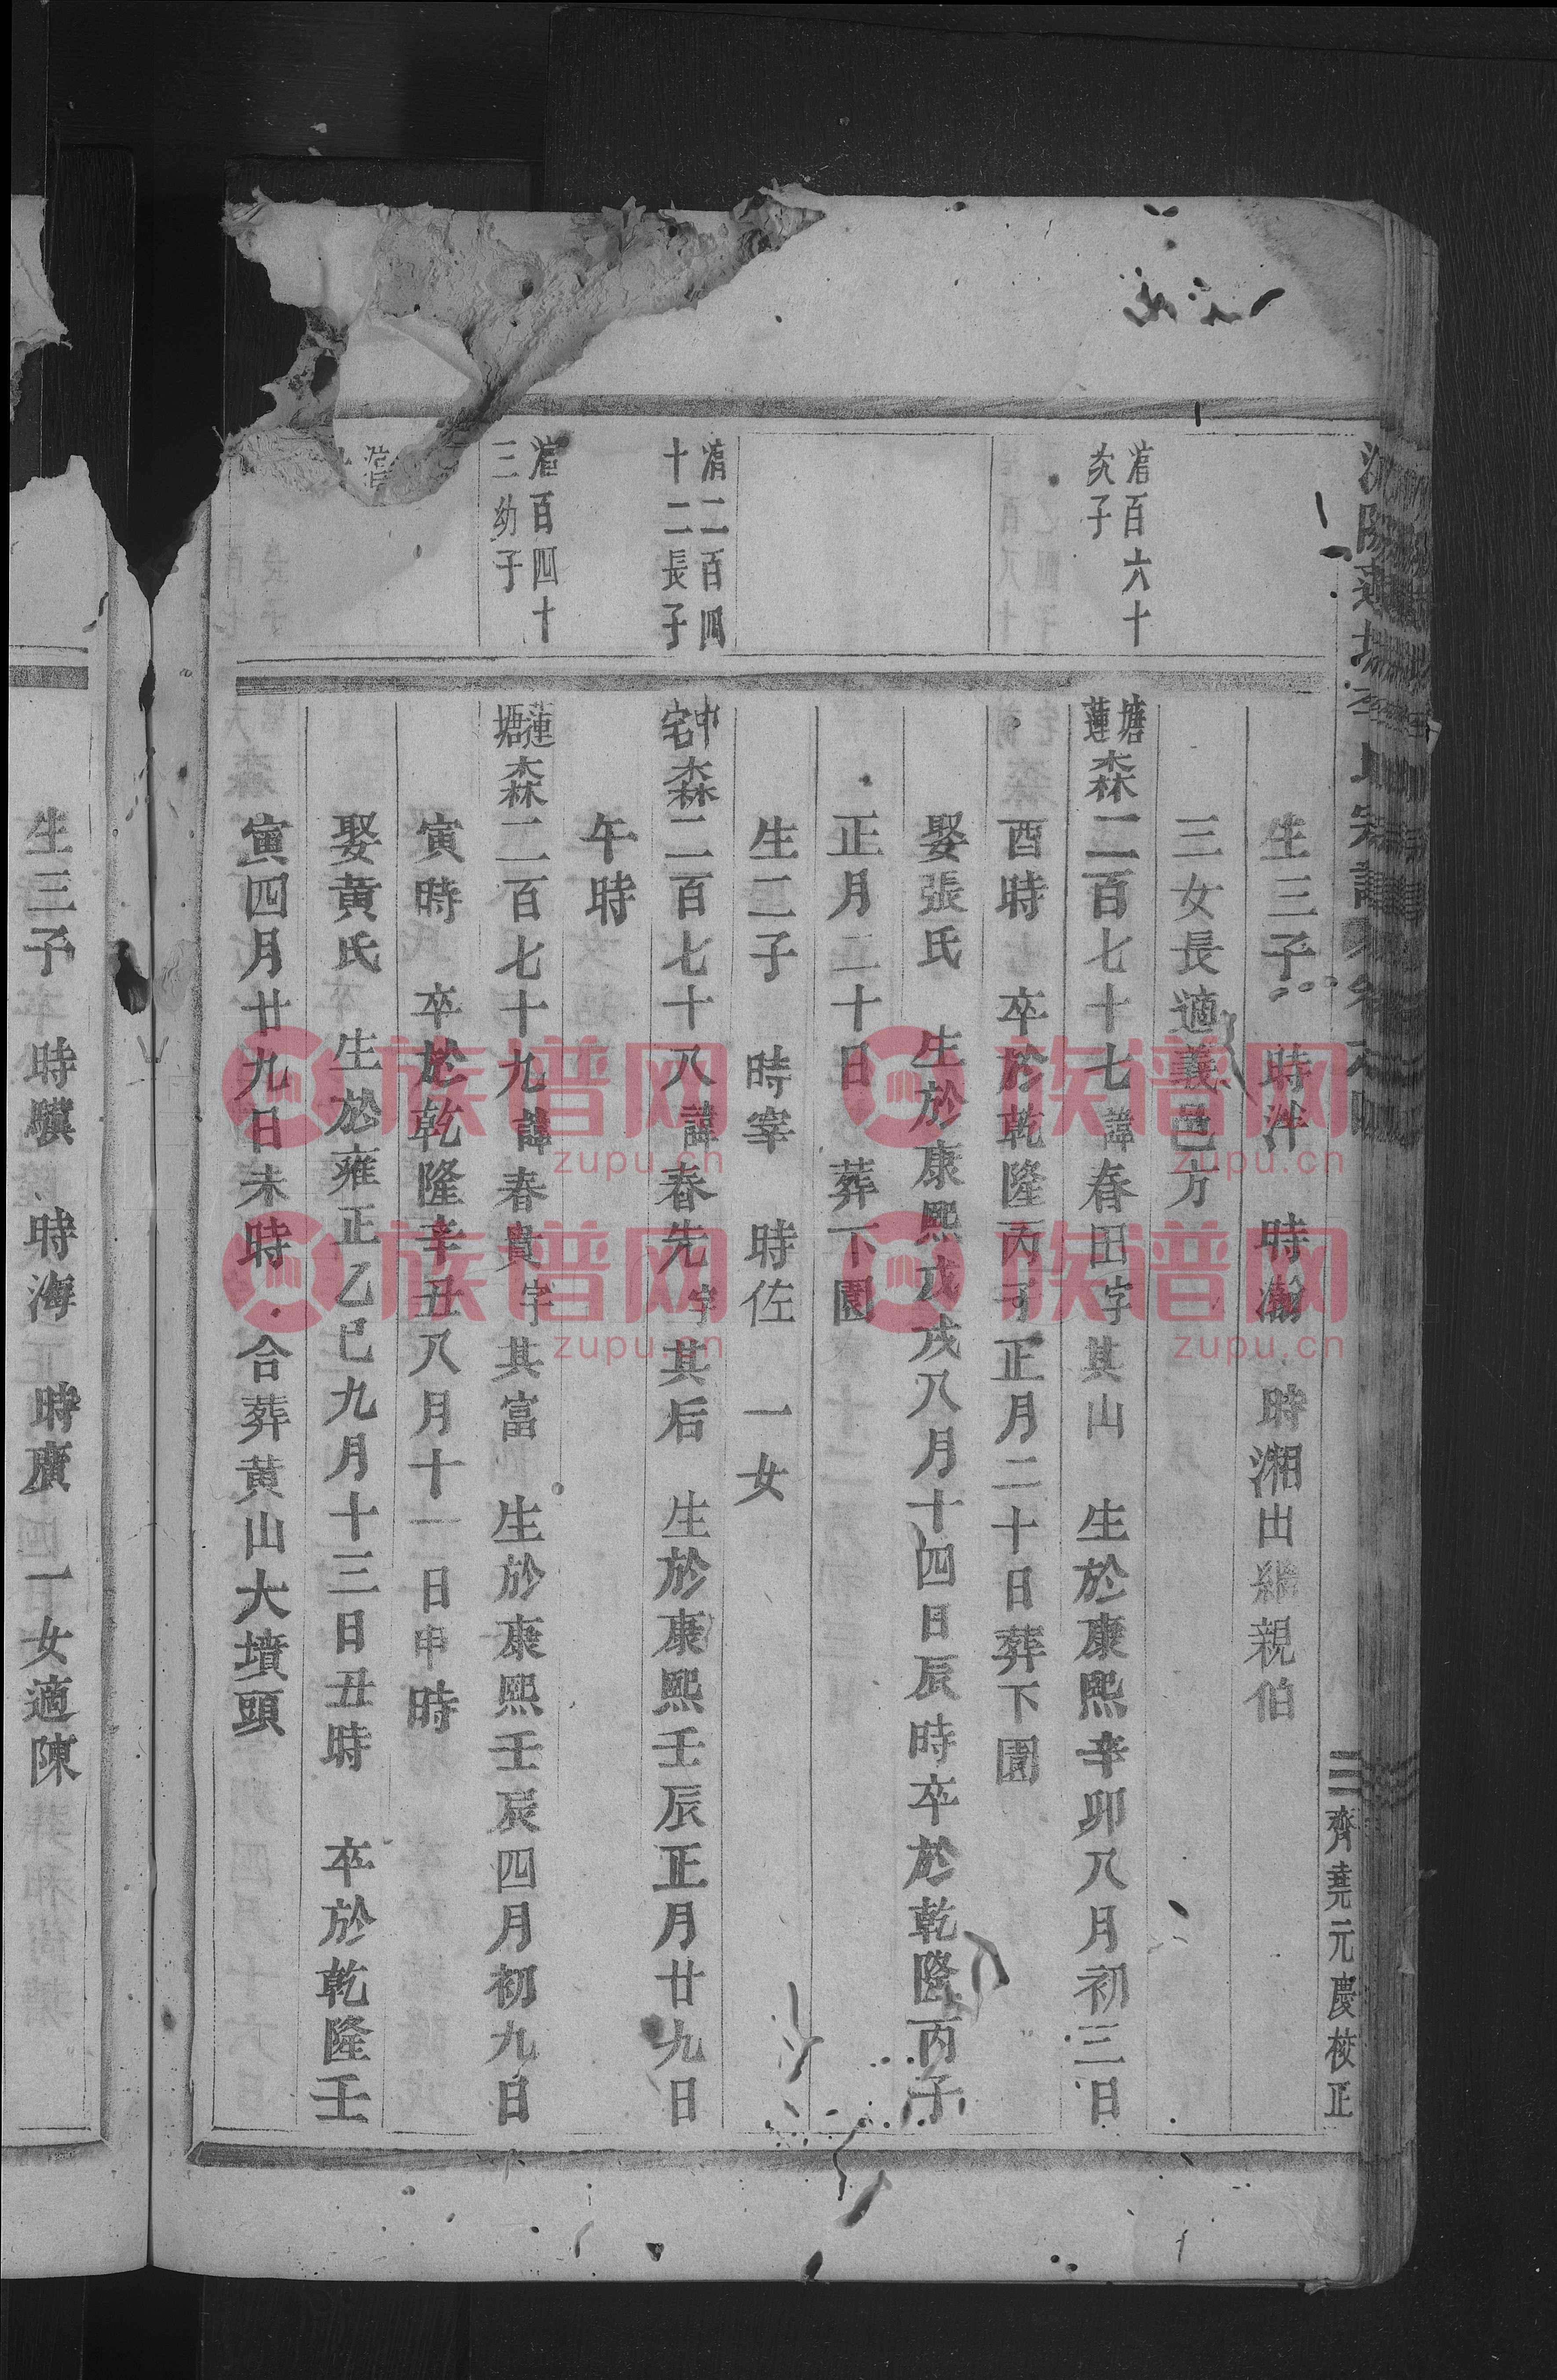 生三子　時泮　時瀚　時湘出繼親伯
三女長適義邑方
湻百六十
次子
蓮塘森二百七十七諱春田字其山　生於康熙辛卯八月初三日
酉時　卒於乾隆丙子正月二十日葬下園
娶張氏　生於康熙戊戌八月十四日辰時卒於乾隆丙子
正月二十日　葬下園
生二子　時宰　時佐　一女
湻二百四
十二長子
中宅森二百七十八諱春先字其后　生於康熙壬辰正月廿九日
午時
湻百四十
三幼子
蓮塘森二百七十九諱春貴字其富　生於康熙壬辰四月初九日
寅時　卒於乾隆辛丑八月十一日申時
娶黄氏　生於雍正乙巳九月十三日丑時　卒於乾隆壬
寅四月廿九日未時　合葬黄山大墳頭
齊堯元慶校正
生三子　時驥　時海　時廣　一女適陳
族谱网
zupu.cn
族谱网
zupu.cn
族谱网
zupu.cn
族谱网
zupu.cn